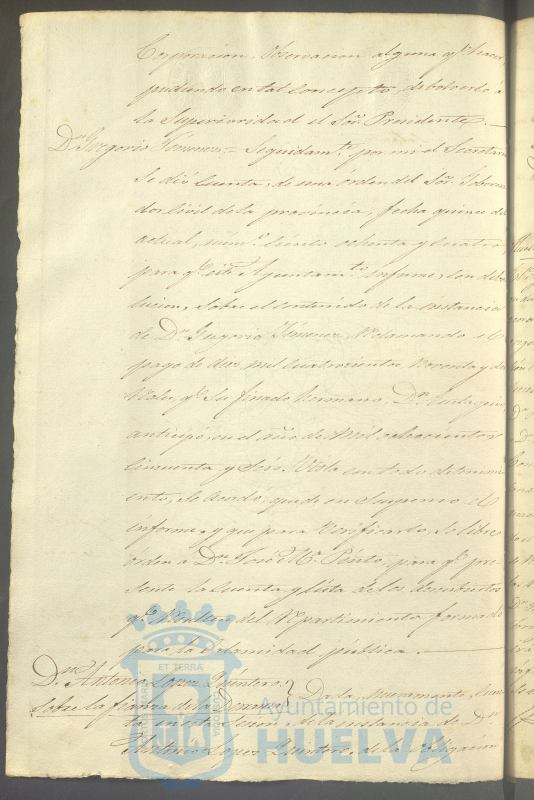 Corporacion observacion alguna q.e hacer,
pudiendo en tal concepto debolverlo á
la Superioridad el Sor. Presidente.
Dn Gregorio Jimenez = Seguidamte. por mi el Secretario
se dió cuenta de una órden del Sor. Goberna
dor Civil de la provincia, fecha quince del
actual, núm.o ciento ochenta y cuatro
para q.e este Ayuntamto. informe, con debo
lucion, sobre el contenido de la instancia
de Dn Gregorio Jimenez, reclamando el
pago de diez mil cuatrocientos noventa y dos
reales q.e su finado hermano, Dn
anticipó, en el año de mil ochocientos
cincuenta y seis. Visto con todo detenimi
ento, se acordó quede en suspenso el
informe y que para verificarlo, se libre
órden á Dn José Ma. Pinto, para q.e pre
sente la cuenta y lista de los
q.e resulten del repartimiento formado
para la calamidad pública.
Dn Antonio Lopez Quintero
sobre la fianza de la
Dada nuevamente cuen
ta en esta sesion de la instancia de Dn
Antonio Lopez Quintero, de la obligacion
ET TERRA
Ayuntamiento de
HUELVA